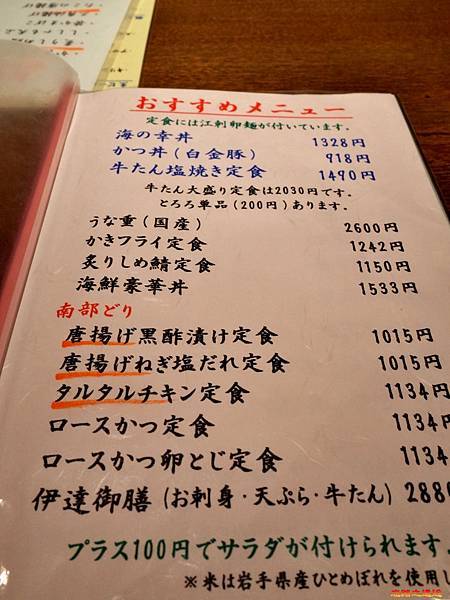 おすすめメニュー
定食には江刺卵麺が付いています。
海の幸丼 1328円
かつ丼(白金豚) 918円
牛たん塩焼き定食 1490円
牛たん大盛り定食は2030円です。
とろろ単品(200円)あります。
うな重(国産) 2600円
かきフライ定食 1242円
炙りしめ鯖定食 1150円
海鮮豪華丼 1533円
南部どり
唐揚げ黒酢漬け定食 1015円
唐揚げねぎ塩だれ定食 1015円
タルタルチキン定食 1134円
ロースかつ定食 1134円
ロースかつ卵とじ定食 1134
伊達御膳(お刺身・天ぷら・牛たん) 2880
プラス100円でサラダが付けられます。
※米は岩手県産ひとめぼれを使用し